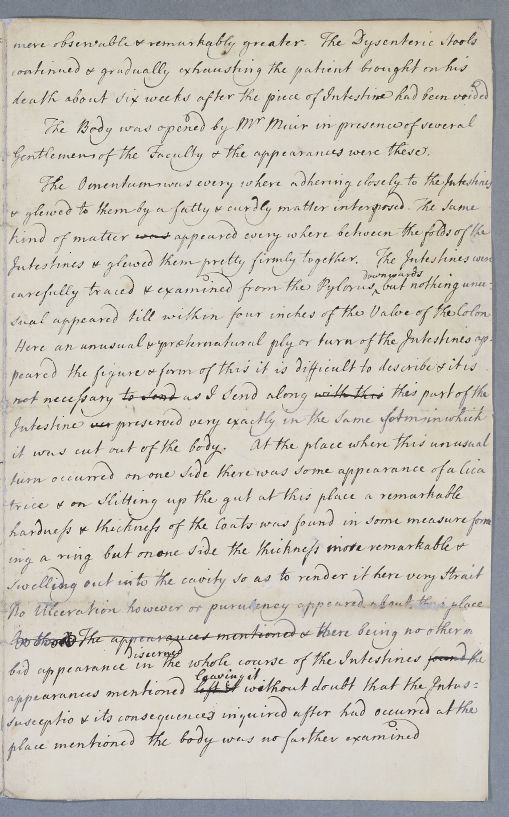 more observable & remarkably greater. The Dysenteric Stools
continued & gradually exhausting the patient brought on his
death about six weeks after the piece of Intestine had been voided
The Body was opened by Mr Muir in presence of several
Gentlemen of the Faculty & the appearances were these.
The Omentum was every where adhering closely to the Intestines
& glewed to them by a fatty & curdly matter interposed. The same
kind of matter was appeared every where between the folds of the
Intestines & glewed them pretty firmly together. The Intestines were
downwards
carefully traced & examined from the Pylorus but nothing unu-
sual appeared till within four inches of the Valve of the Colon
Here an unusual & præternatural ply or turn of the Intestines ap-
peared the figure & form of this it is difficult to describe & it is
not necessary to send as I send along with this this part of the
Intestine preserved very exactly in the same form in which
it was cut out of the body. At the place where this unusual
turn occurred on one side there was some appearance of a Cica
trice & on slitting up the gut at this place a remarkable
hardness & thickness of the Coats was found in some measure form
ing a ring but on one side the thickness more remarkable &
swelling out into the cavity so as to render it here very strait
No Ulceration however or purulency appeared about this place
The appearances mentioned & there being no other mor
discerned
bid appearance in the whole course of the Intestines found the
leaving it
appearances mentioned left it without doubt that the Intus=
susceptio & its consequences inquired after had occurred at the
place mentioned the body was no farther examined